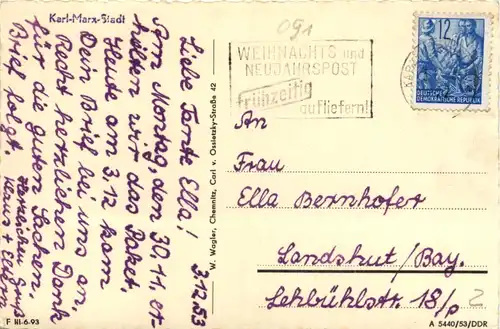 Karl-Marx-Stadt
3.12.53
Liebe Tante Ella!
Am Montag, den 30.11. er-
hielten wir das Paket.
Heute am 3.12 kam
Dein Brief bei uns an.
Recht herzlichen Dank
für die guten Sachen.
Brief folgt.
Herzlichen Gruß
Klaus + Eltern
F III-6-93
W. Wagler, Chemnitz, Carl v. Ossietzky-Straße 42
091
WEIHNACHTS und
NEUJAHRSPOST
frühzeitig
aufliefern!
12
DEUTSCHE
DEMOKRATISCHE REPUBLIK
An
Frau
Ella Bernhofer
Landshut/Bay.
Lehbühlstr. 18/p
2
A 5440/53/DDR